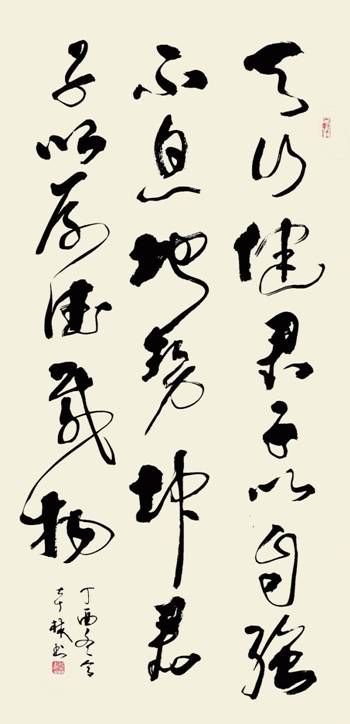 天行健君子以自強
不息地勢坤君
子以厚德載物
丁酉冬
林書